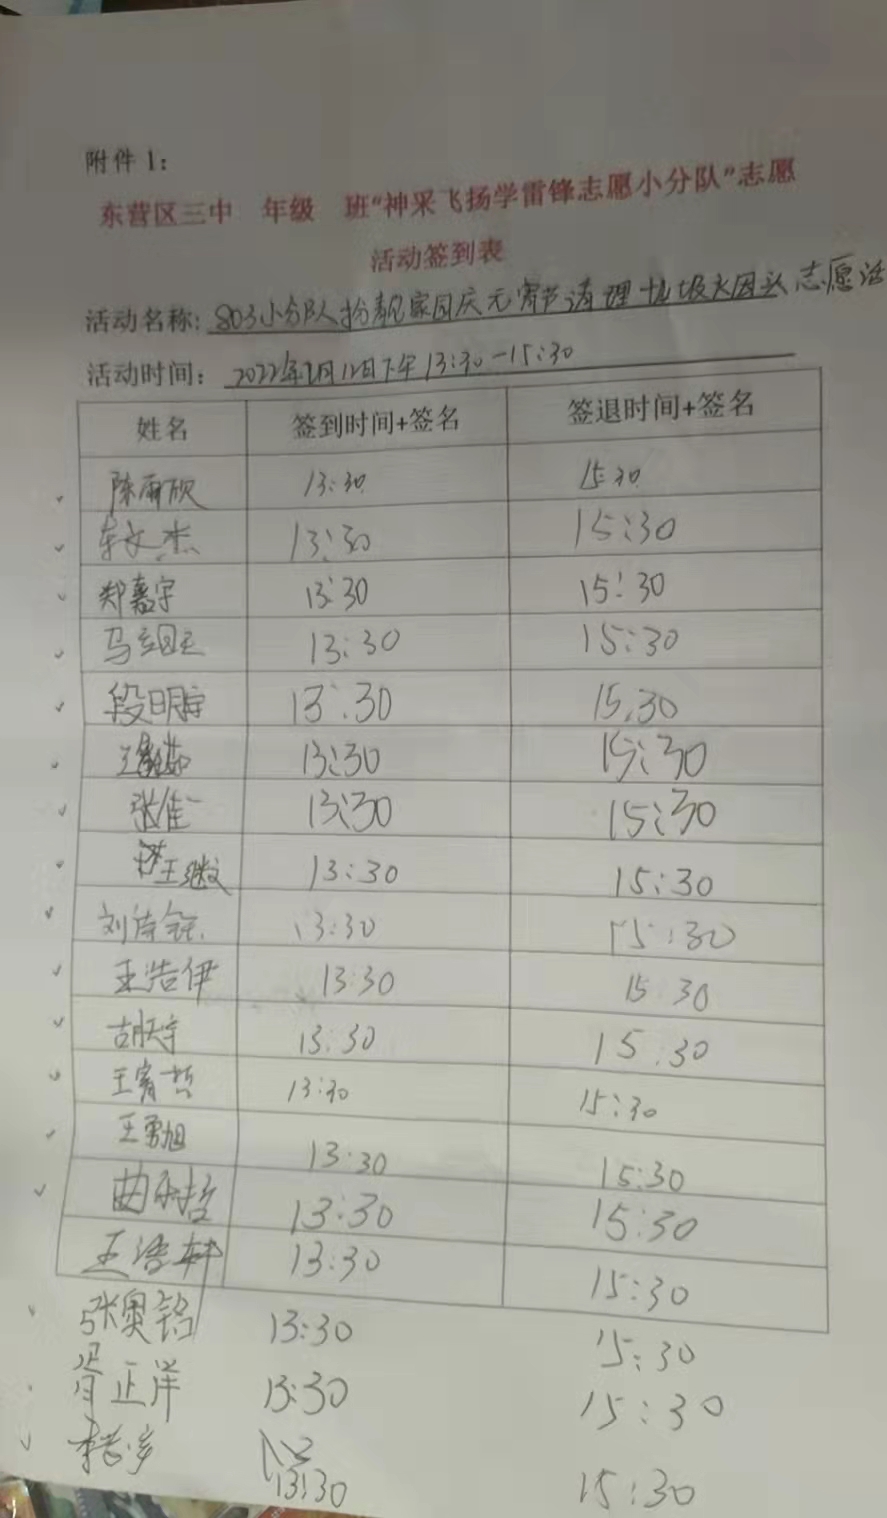 附件 1：
东营区三中 年级 班“神采飞扬学雷锋志愿小分队”志愿
活动签到表
活动名称: 803小分队扮靓家园庆元宵节清理垃圾大因头志愿活
活动时间： 2022年2月12日下午13:30-15:30
姓名 签到时间+签名 签退时间+签名
陈雨欣 13:30 15:30
车文杰 13:30 15:30
郑嘉宇 13:30 15:30
马 13:30 15:30
段明宇 13:30 15:30
王 13:30 15:30
张佳一 13:30 15:30
王继文 13:30 15:30
刘诗钰 13:30 15:30
王浩伊 13:30 15 30
胡天宇 13:30 15:30
王宥哲 13:30 15:30
王勇旭 13:30 15:30
曲 哲 13:30 15:30
王浩轩 13:30 15:30
张奥铭 13:30 15:30
胥正洋 13:30 15:30
李 13:30 15:30